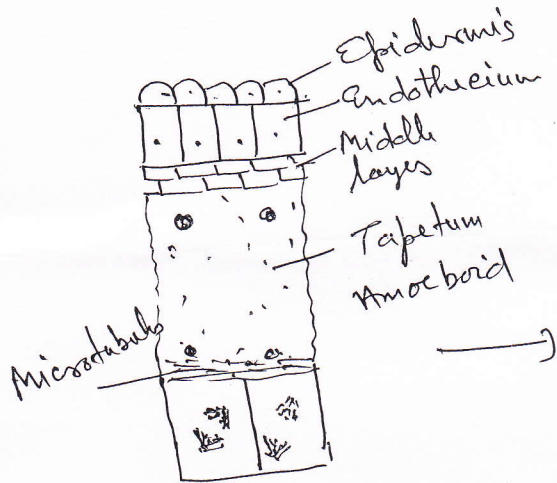 Epidermis
Endothecium
Middle
layes
Tapetum
Amoeboid
Microtubuls